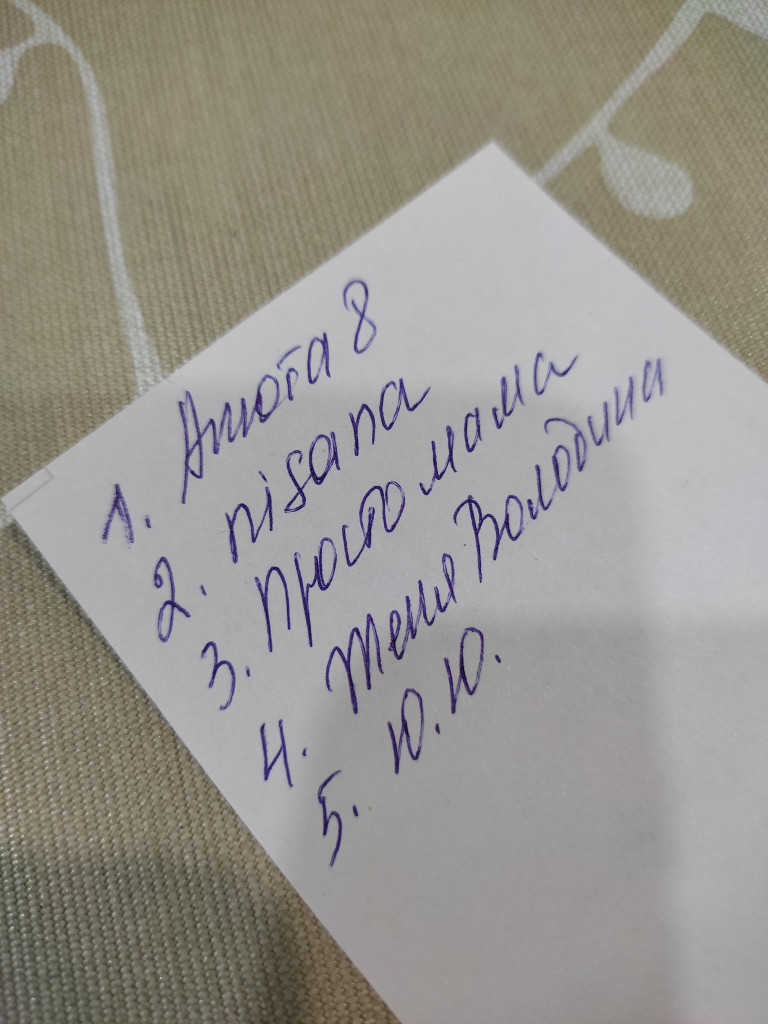 1. Анюта 8
2. nisana
3. Просто мама
4. Женя Володина
5. Ю.Ю.